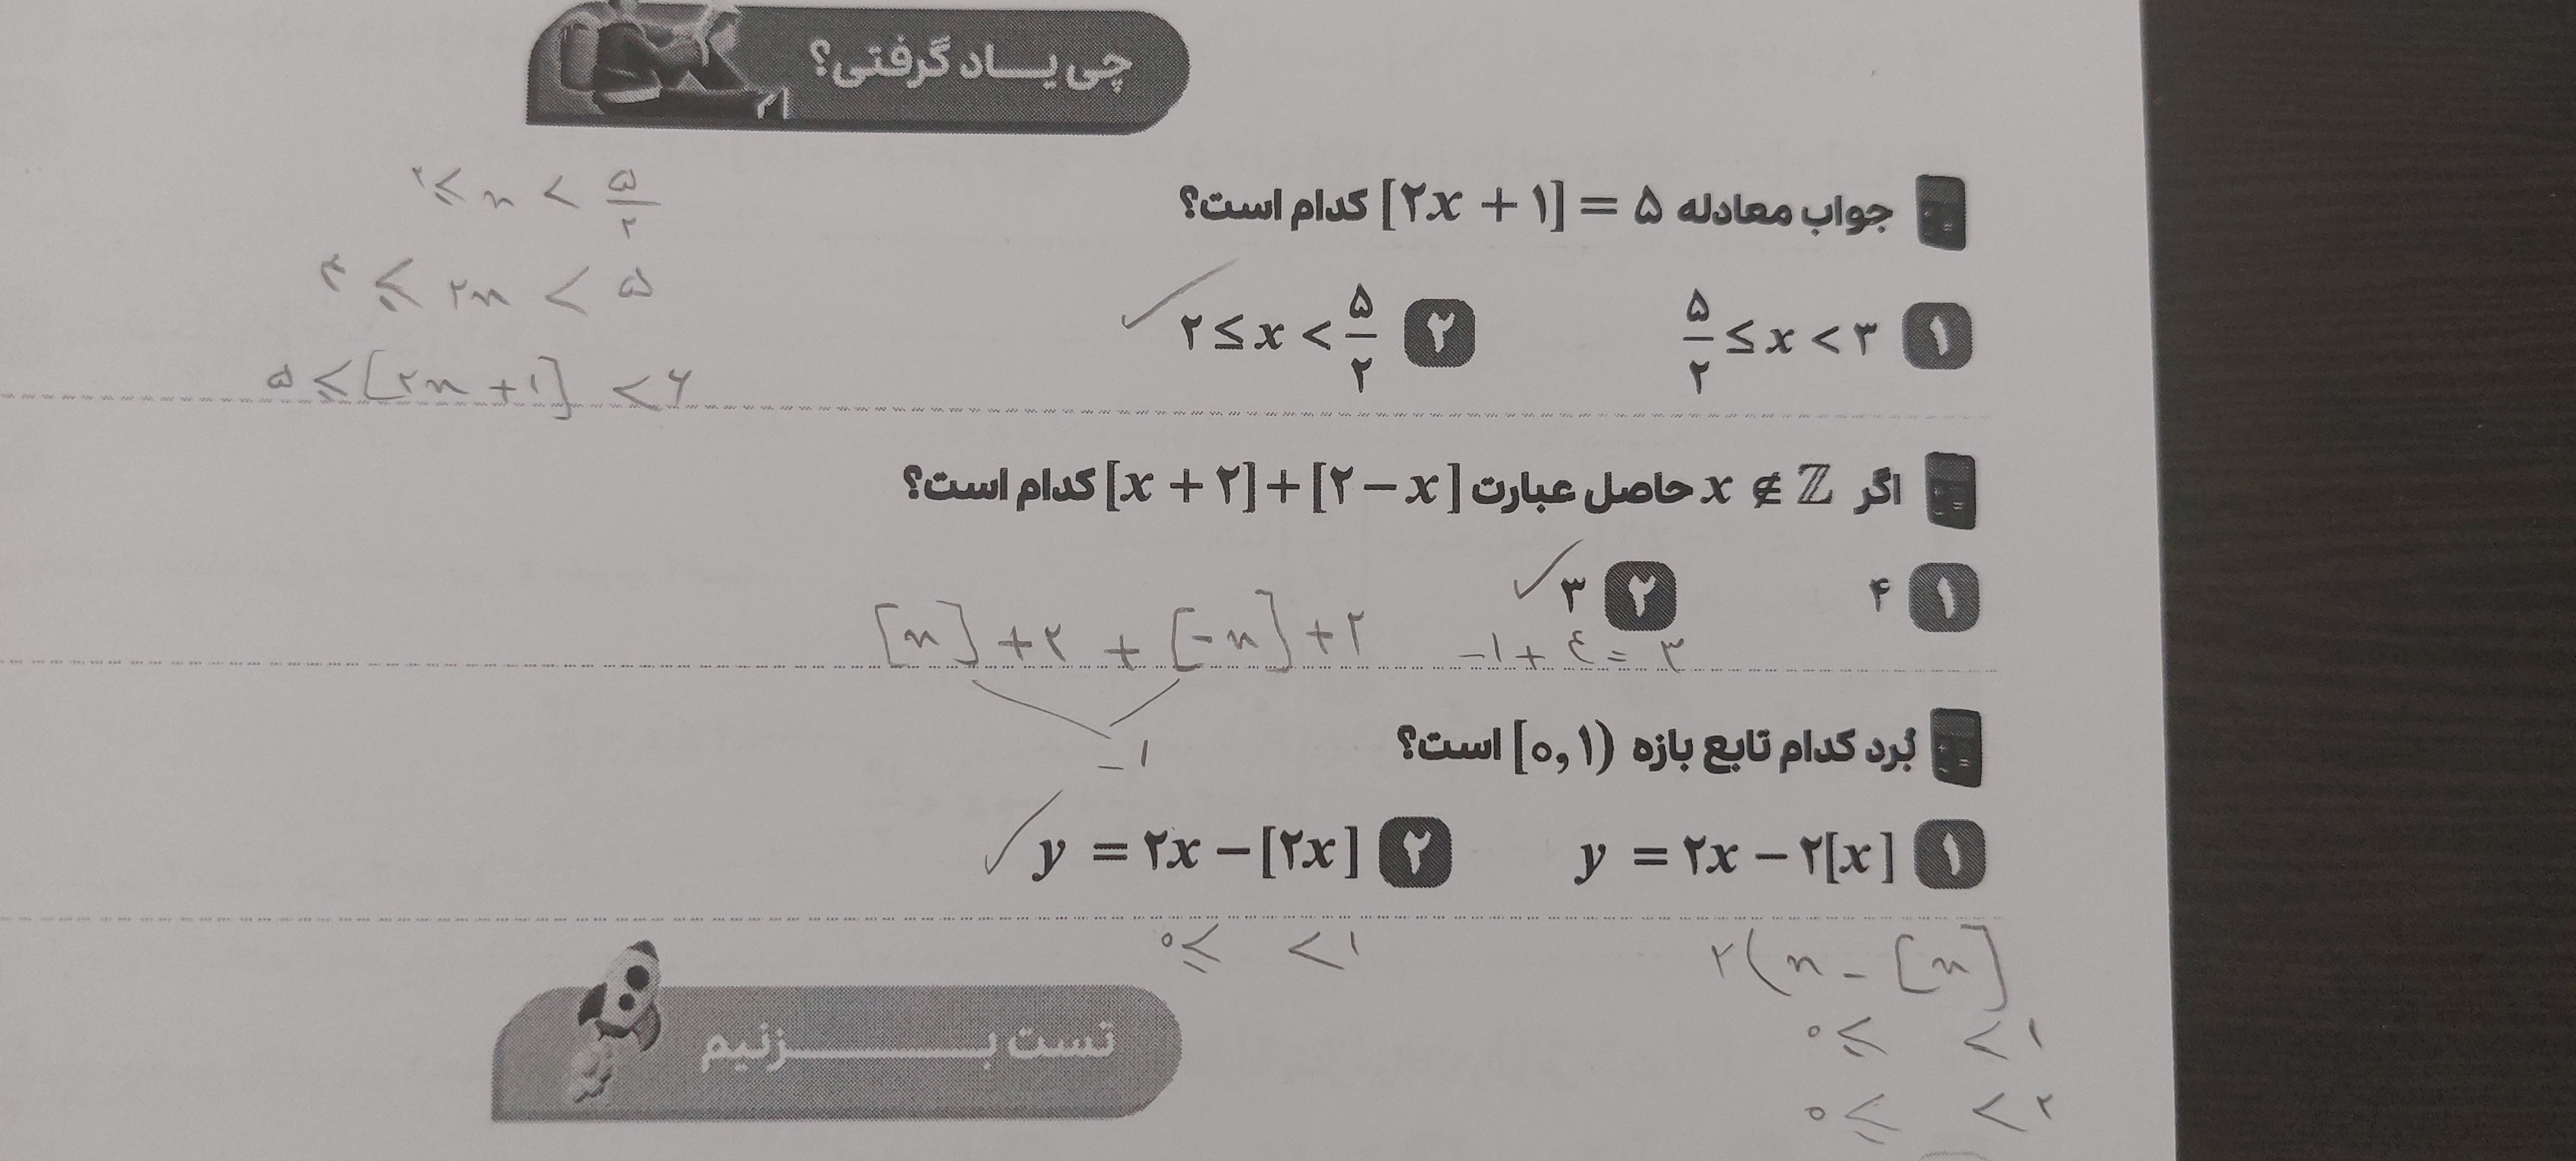 چی یــاد گرفتی؟
جواب معادله [۲x + ۱] = ۵ کدام است؟
۱ ۵/۲ ≤ x < ۳ ۲ ۲ ≤ x < ۵/۲ ✓
۲ ≤ n < ۵/۲
۴ ≤ ۲n < ۵
۵ ≤ [۲n + ۱] < ۶
اگر x ∉ ℤ حاصل عبارت [x + ۲] + [۲ − x] کدام است؟
۱ ۴ ۲ ۳ ✓
[n] + ۲ + [−n] + ۲ −۱ + ٤ = ۳
−۱
بُرد کدام تابع بازه [۰, ۱) است؟
۱ y = ۲x − ۲[x] ۲ y = ۲x − [۲x] ✓
۰ ≤ < ۱
۲(n − [n]
۰ ≤ < ۱
۰ ≤ < ۲
تست بـــــزنیم